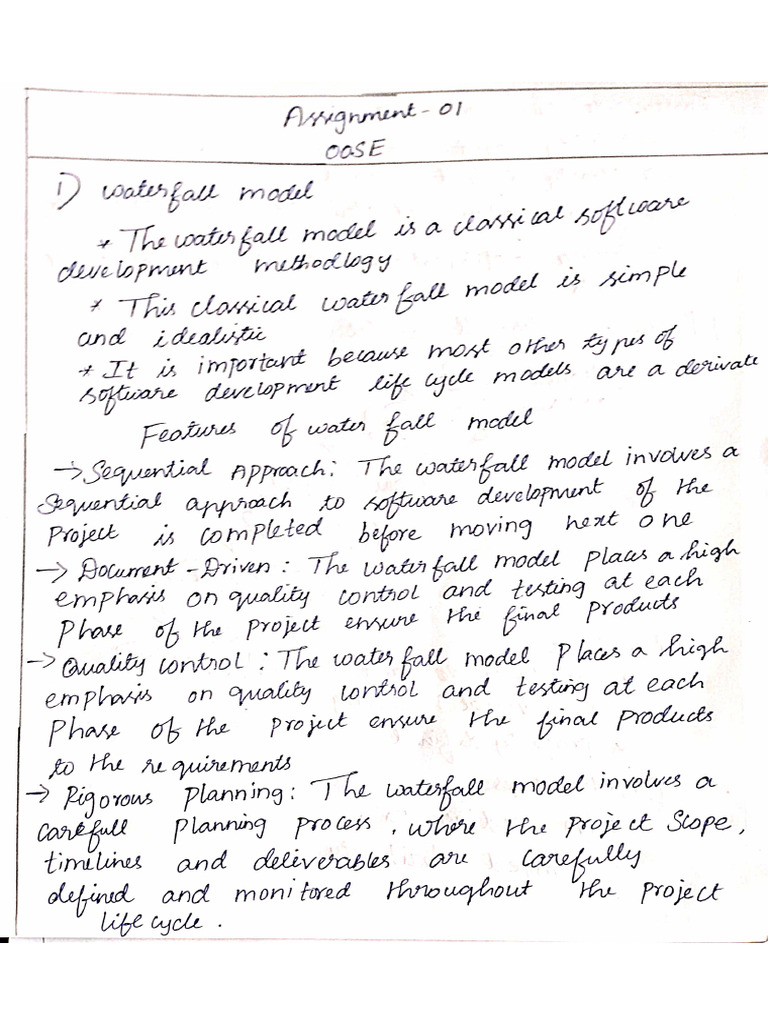 Assignment-01
OOSE
1) waterfall model
* The waterfall model is a classical software
development methodlogy
* This classical waterfall model is simple
and idealistic
* It is important because most other types of
software development life cycle models are a derivate
Features of water fall model
→ Sequential Approach: The waterfall model involves a
sequential approach to software development of the
Project is completed before moving next one
→ Document-Driven: The waterfall model places a high
emphasis on quality control and testing at each
Phase of the project ensure the final products
→ Quality control: The water fall model places a high
emphasis on quality control and testing at each
Phase of the project ensure the final products
to the requirements
→ Rigorous Planning: The waterfall model involves a
carefull planning process, where the project scope,
timelines and deliverables are carefully
defined and monitored throughout the project
life cycle.